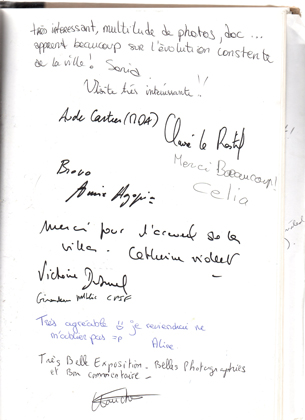 très intéressant, multitude de photos, doc ...
apprent beaucoup sur l'évolution constente
de la ville! Sonia
Visite très intéressante!!
Aude
Claire le
Merci Beaucoup!
Celia
Bravo
Annie
merci pour l'accueil de la
ville. Catherine
Victoire
Très agréable je reviendrai ne
m'oubliez pas =p
Alice
Très Belle Exposition. Belles Photographies
et Bon commentaire -